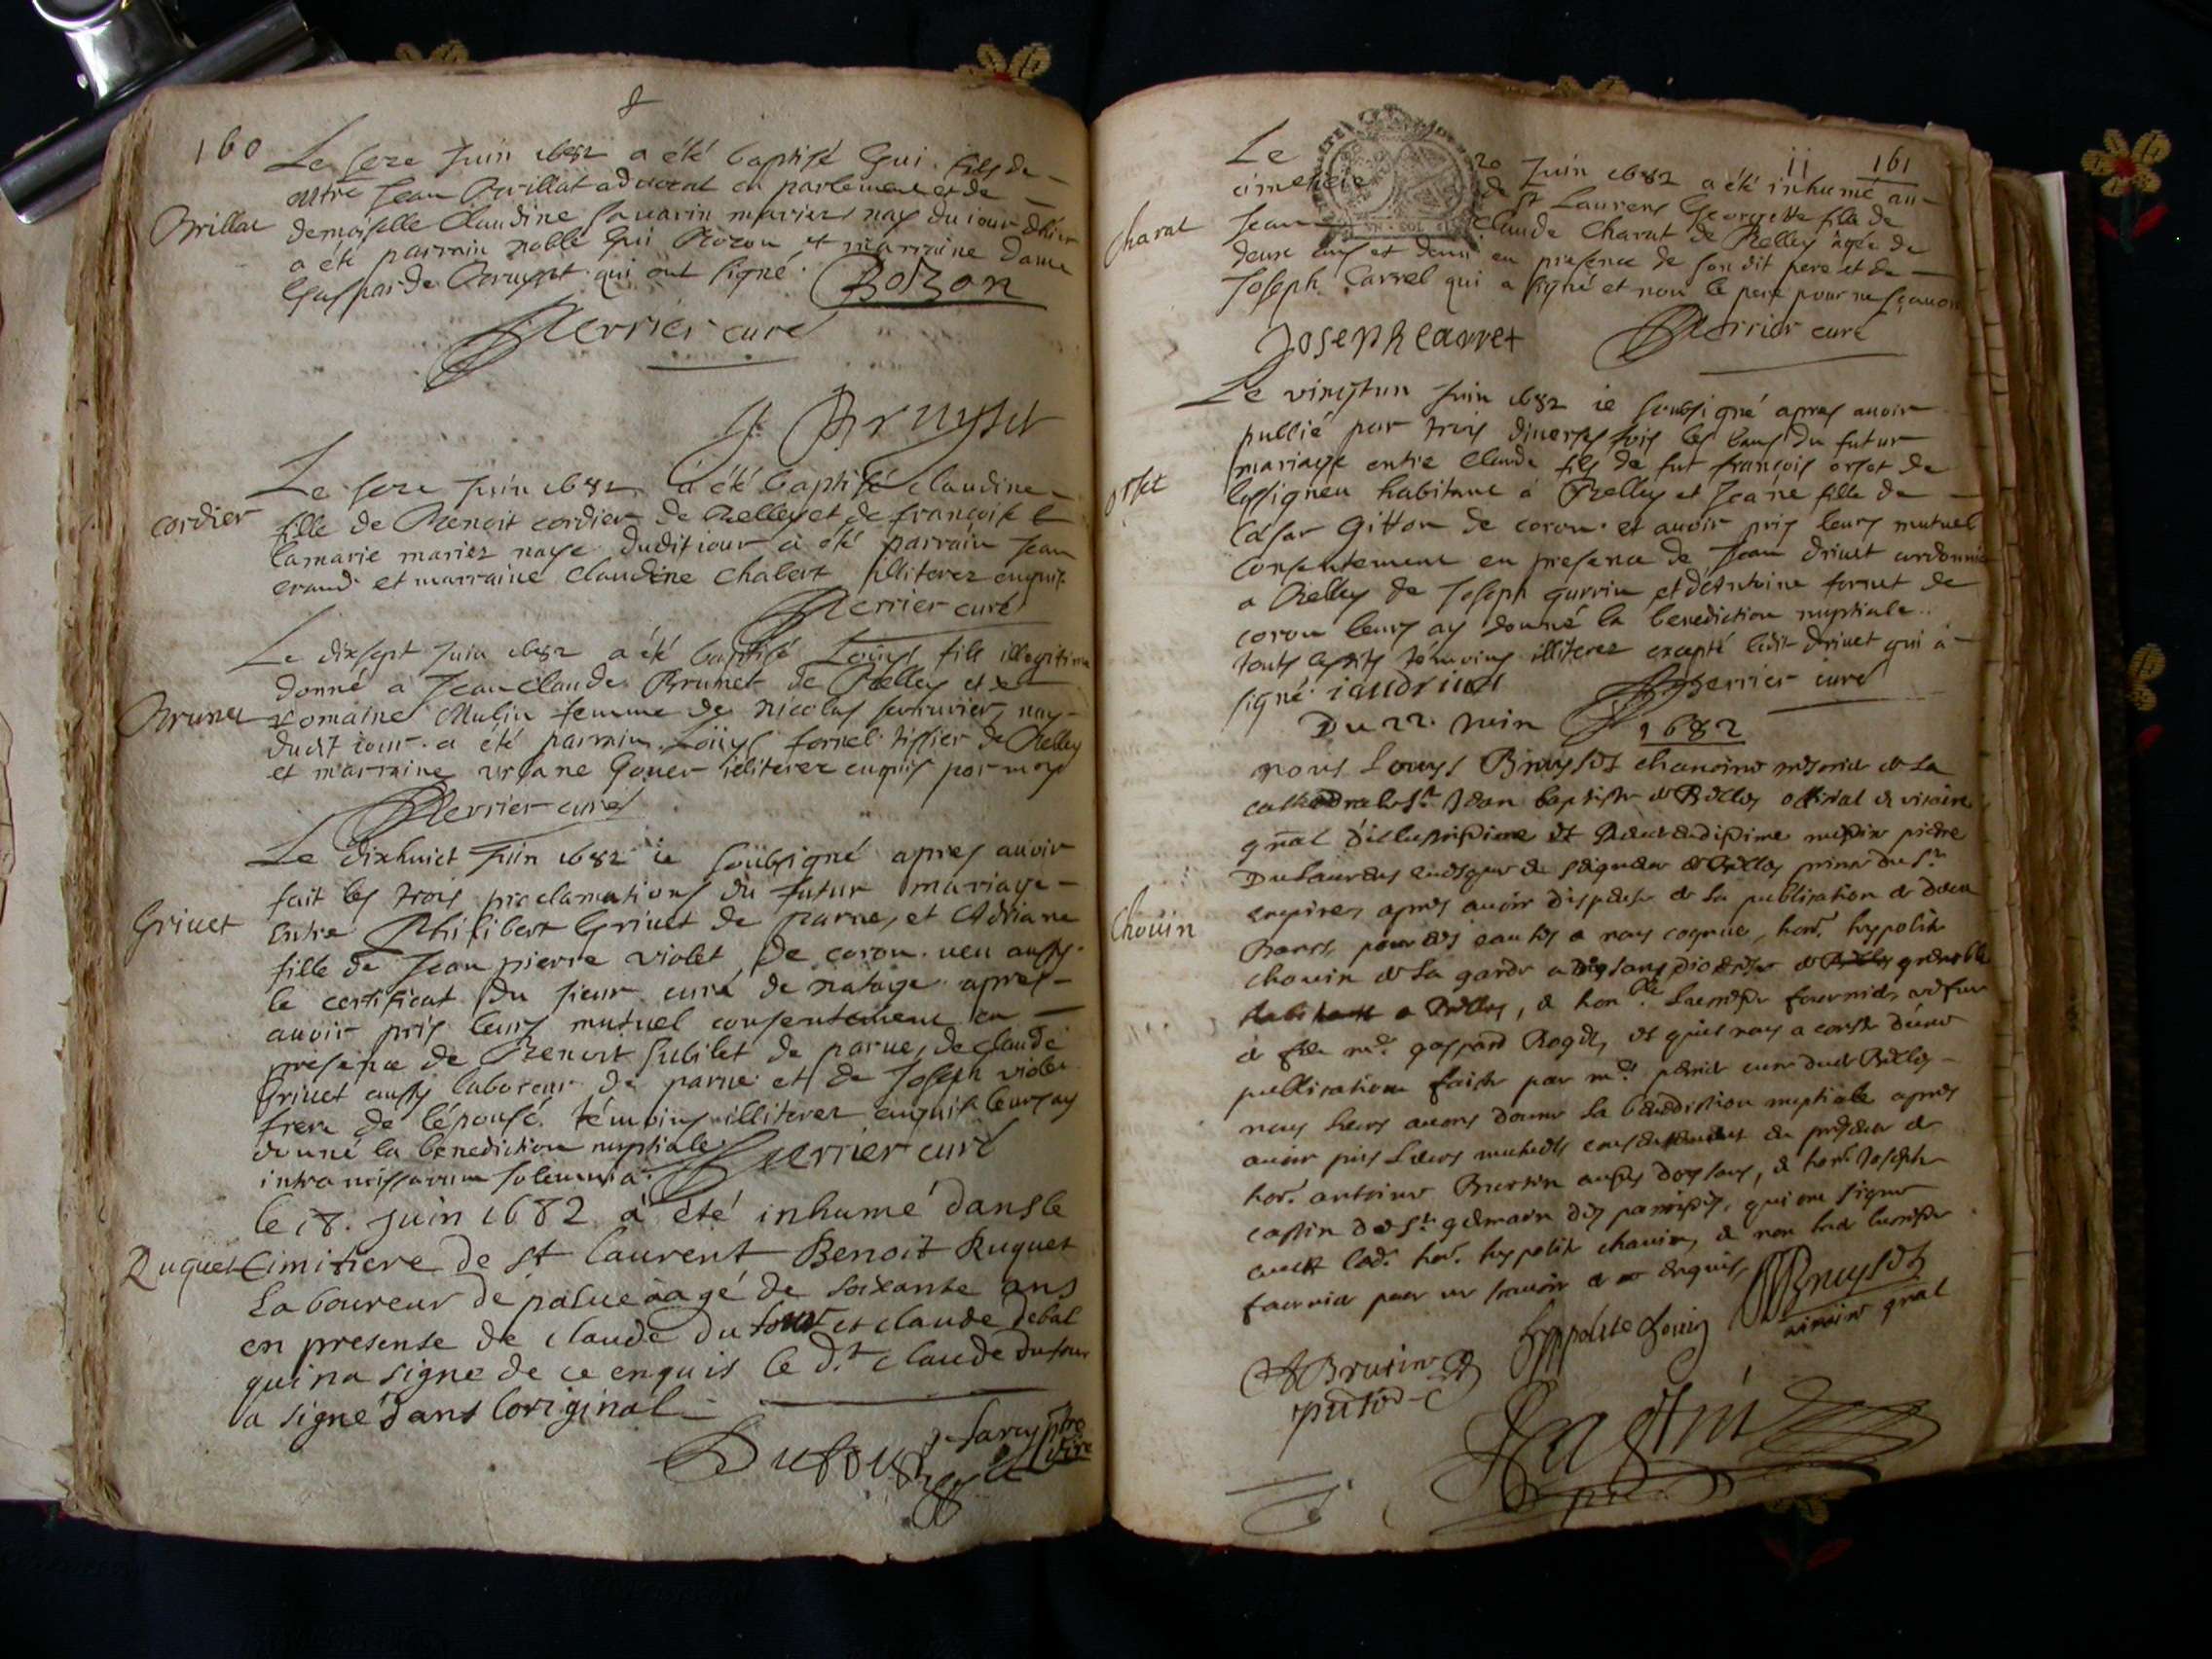 160
Le seze Juin 1682 a été baptisé Gui fils de
Mtre Jean Brillat advocat en parlement et de
Brillat
demoiselle Claudine Sauarin mariez nay du iour d'hier
a été parrain noble Gui Bozon et marraine dame
Gasparde Bruyset qui ont signé. Bozon
Perrier curé
G. Bruyset
Le seze Juin 1682 a été baptisé claudine
cordier
fille de Benoit cordier de Belley et de francoise
lamarie mariez naye dudit iour a été parrain Jean
eraud et marraine claudine Chabert illiterez enquis
Perrier curé
Le dixsept Juin 1682 a été baptisé Louys fils illegitime
donné a Jean claude Brunet de Belley et de
Brunet
Romaine Mulin femme de nicolas serrurier, nay
dudit iour a été parrain Louys fornel tissier de Belley
et marraine ursane Goner illiterez enquis par moy
Perrier curé
Le dixhuict Juin 1682 ie soubsigné apres auoir
fait les trois proclamations du futur mariage
Griuet
entre Philibert Griuet de parue, et Adriane
fille de Jean pierre violet de coron. ueu aussy
le certificat du sieur curé de natage apres
auoir pris leurs mutuel consentement en
presence de Benoit Subilet de parue, de claude
Griuet aussy laboreur de parue et de Joseph violet
frere de l'épousé. témoins illiterez enquis leurs ay
donné la benediction nuptiale
intra missarum solemnia. Perrier curé
le 18. juin 1682 a été inhumé dans le
Ruquet
cimitiere de st laurent Benoit Ruquet
laboureur de palue aagé de soixante ans
en presense de claude dufour et claude debal
qui na signe de ce enquis le d.t claude dufour
a signé dans loriginal
Dufour
161
Le 20 Juin 1682 a été inhumé au
cimetiere de St Laurens Georgette fille de
Charat
Jean Claude Charat de Belley agée de
deux ans et demi en presence de son dit pere et de
Joseph Carrel qui a signé et non le pere pour ne sçauoir
Joseph carret Perrier curé
Le vingtun Juin 1682 ie soubsigné apres auoir
publié par trois diuerses fois les bans du futur
mariage entre Claude fils de fut françois orset de
orset
lassignieu habitant a Belley et Jeane fille de
César Gitton de coron. et auoir pris leurs mutuel
consentement en presence de Jean driuet cordonnier
a Belley de Joseph gurrin et d'Antoine fornet de
coron leurs ay donné la benediction nuptiale.
touts lesdits temoins illiterez excepté ledit driuet qui a
signé. iandriuet Perrier curé
Du 22. Juin 1682
nous Louys Bruyset chanoine de la
cathedrale St Jean baptiste de Belley official & vicaire
gnal d'illustrissime et reuerendissime messire pierre
DuLaurens euesque & seigneur de Belley prince du St
empire, apres auoir dispense de la publication de deux
Chouin
Bans, pour des causes a nous cognue, hon. hyppolite
chouin de la garde diocese de grenoble
a Belley, & hon.ble Lucresse fournier
publication faicte par
nous leurs auons donne la benediction nuptiale apres
auoir pris leurs mutuels consentement en presence de
hon. antoine Brutin & hon. Joseph
cassin de St germain des paroisses, qui ont signe
auec led. hon. hyppolite chouin, & non lad. lucresse
fournier pour ne scauoir de enquis. Bruyset
vicaire gnal
hyppolite chouin
A Brutin